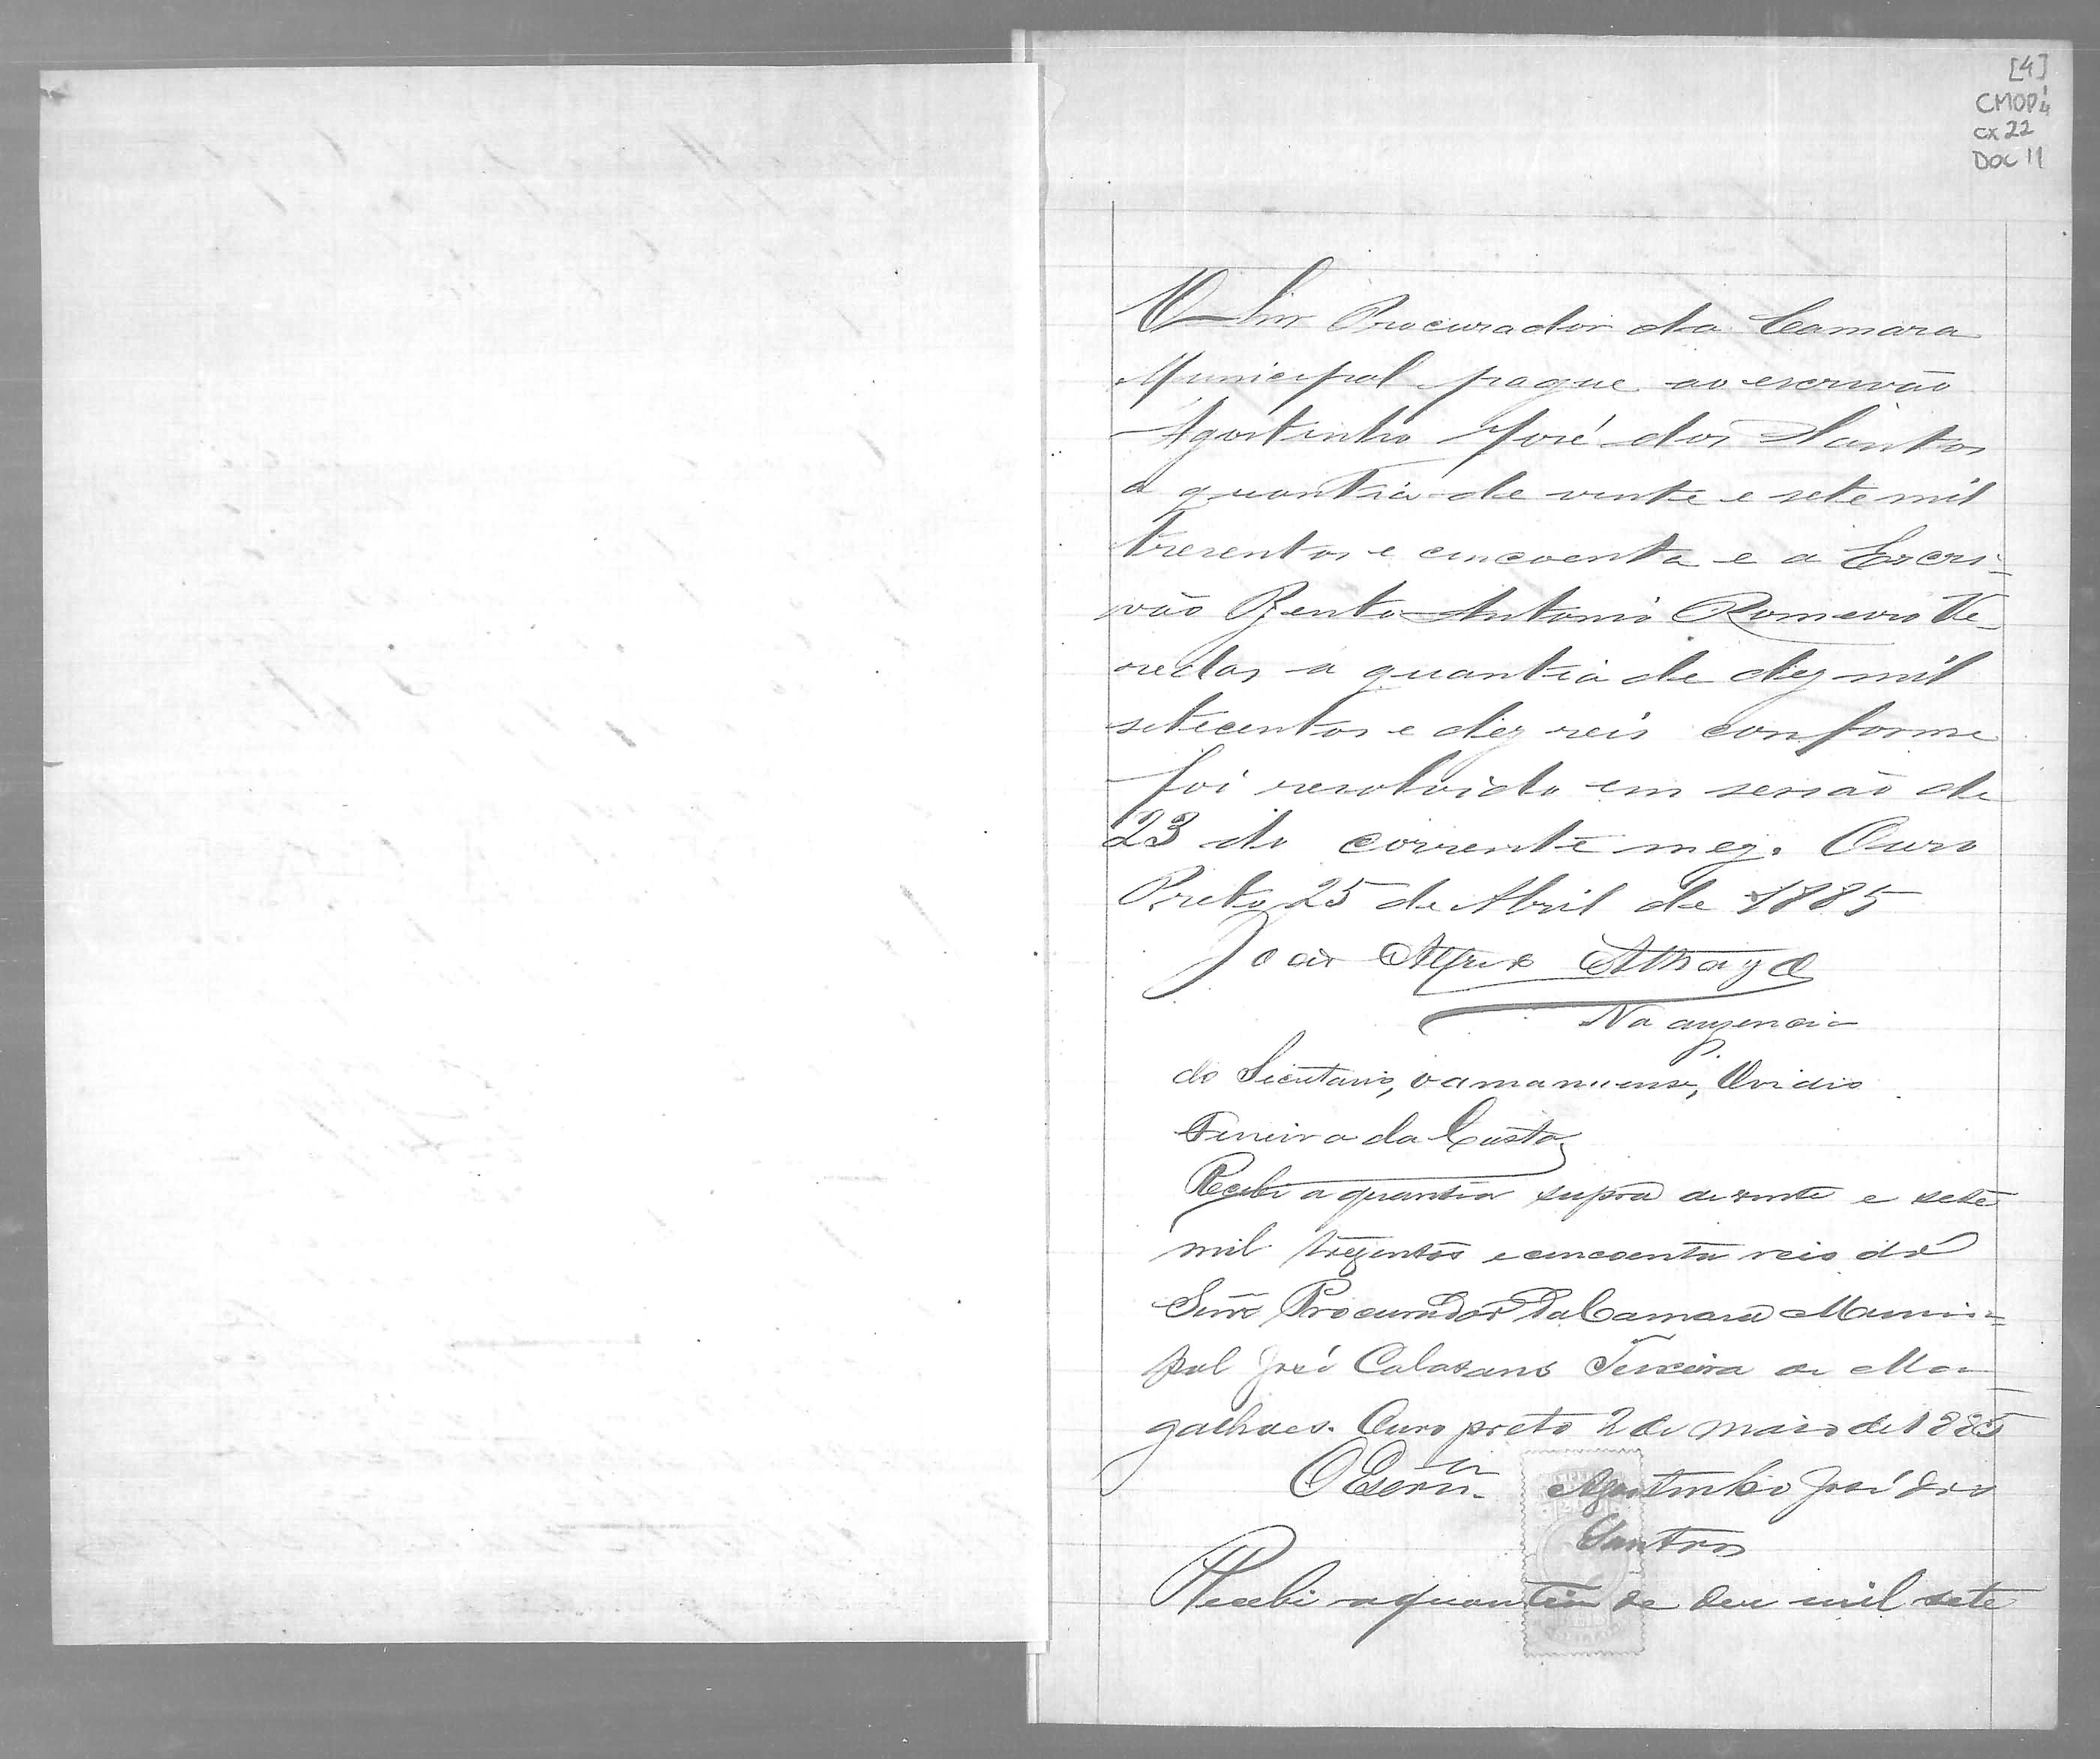 [4]
CMOP 4
CX 22
DOC 11
O Snr Procurador da Camara
Municipal pague ao escrivão
Agostinho José dos Santos
a quantia de vinte e sete mil
tresentos e cincoenta e a Escri-
vão Bento Antonio Romeiro Ve-
redas a quantia de dez mil
setecentos e dez reis conforme
foi resolvido em sessão de
23 do corrente mez. Ouro
Preto 25 de Abril de 1885
João
Na auzencia
do Secretario, o amanuense, Ovidio
da Costa
Recebi a quantia supra de vinte e sete
mil trezentos e cincoenta reis do
Snro Procurador da Camara Munici=
pal José Calasans Teixeira de Ma-
galhaes. Ouro preto 2 de maio de 1885
O Escrm. Agostinho José dos
Santos
Recebi a quantia de dez mil sete